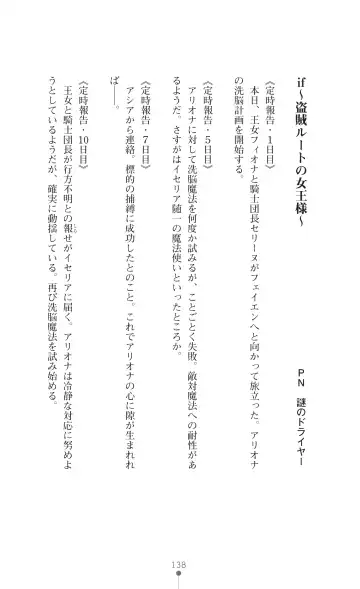 if～盗賊ルートの女王様～
PN　謎のドライヤー
《定時報告・1日目》
本日、王女フィオナと騎士団長セリーヌがフェイエンへと向かって旅立った。アリオナ
の洗脳計画を開始する。
《定時報告・5日目》
アリオナに対して洗脳魔法を何度か試みるが、ことごとく失敗。敵対魔法への耐性があ
るようだ。さすがはイセリア随一の魔法使いといったところか。
《定時報告・7日目》
アシアから連絡。標的の捕縛に成功したとのこと。これでアリオナの心に隙が生まれれ
ば――。
《定時報告・10日目》
王女と騎士団長が行方不明との報せがイセリアに届く。アリオナは冷静な対応に努めよ
うとしているようだが、確実に動揺している。再び洗脳魔法を試み始める。
138